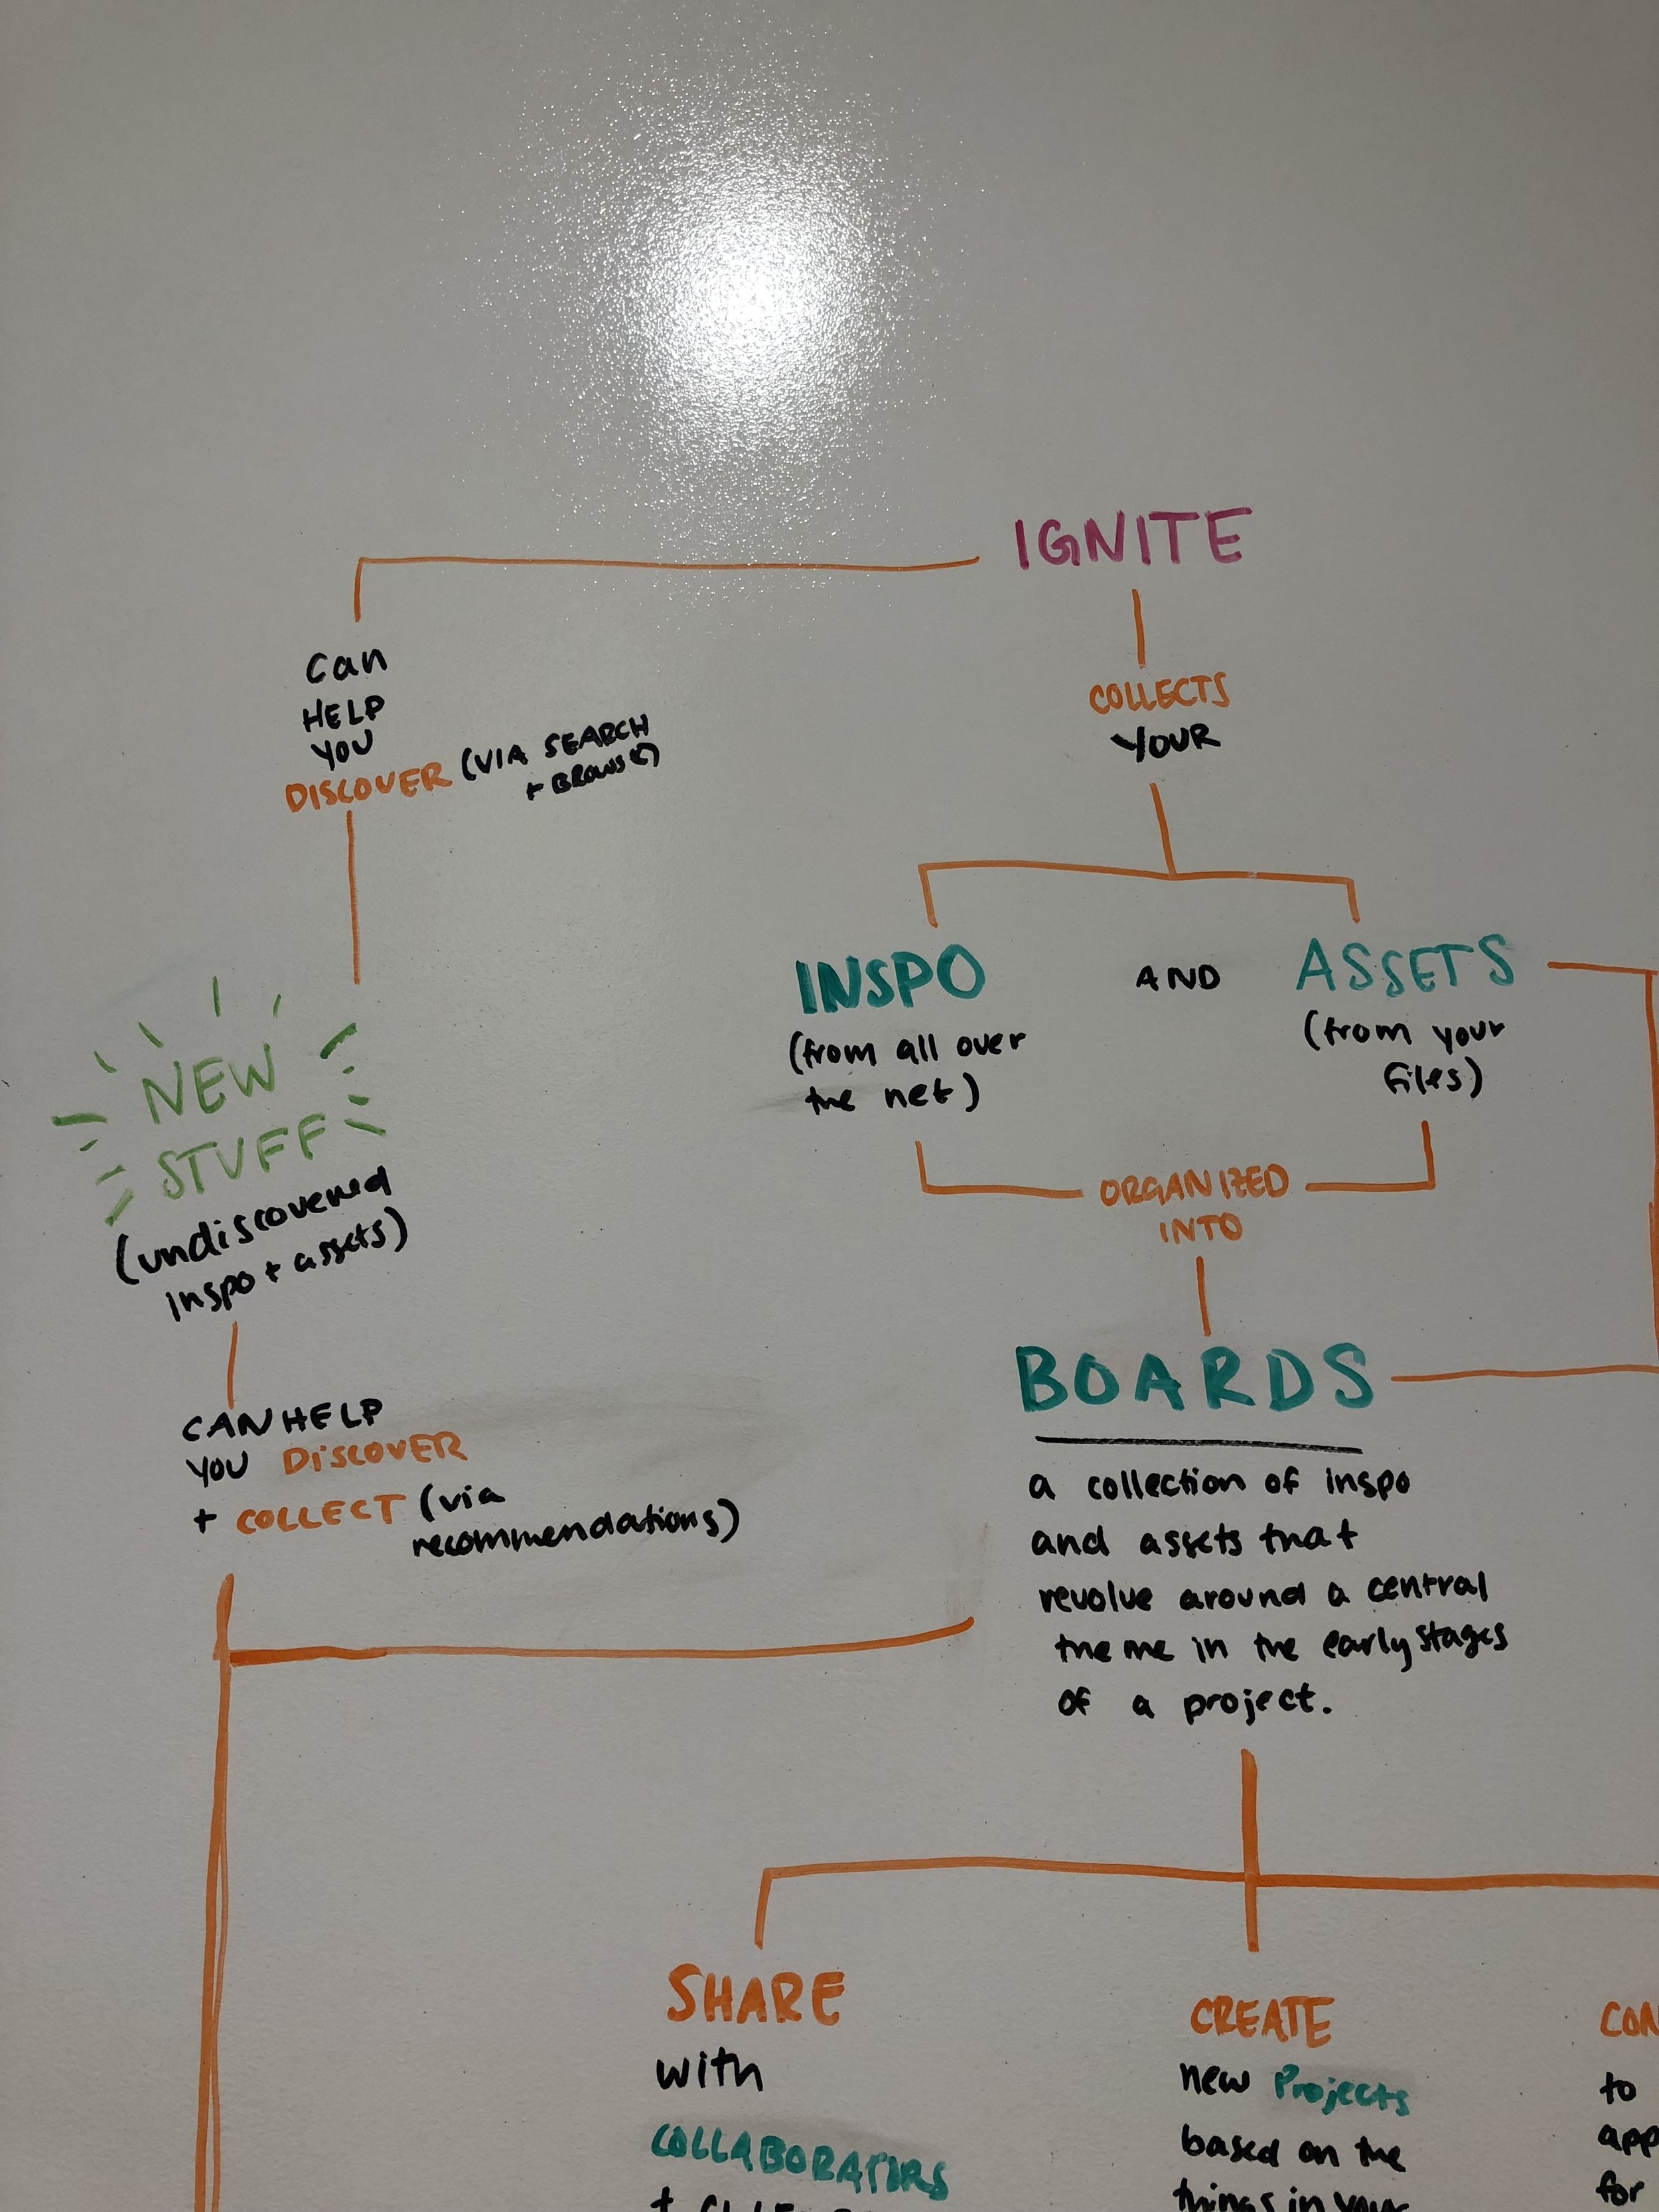 IGNITE
can
HELP
YOU
DISCOVER (VIA SEARCH
+ BROWSE)
COLLECTS
YOUR
INSPO AND ASSETS
(from all over
the net)
(from your
files)
NEW
STUFF
(undiscovered
inspo + assets)
ORGANIZED
INTO
BOARDS
a collection of inspo
and assets that
revolve around a central
theme in the early stages
of a project.
CAN HELP
YOU DISCOVER
+ COLLECT (via
recommendations)
SHARE
with
COLLABORATORS
+
CREATE
new Projects
based on the
things in your
CON
to
app
for